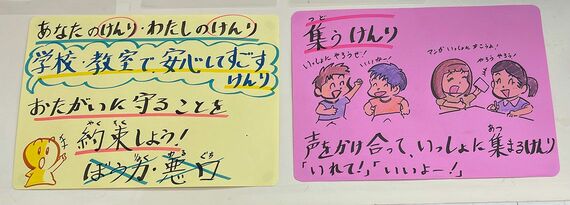 あなたのけんり・わたしのけんり
学校・教室で、安心してすごす
けんり
おたがいに守ることを
やく そく
約束しよう!
ぼう力・悪口
つど
集うけんり
いっしょにやろうぜ!
いいよー!
マンガいっしょにかこうよ!
やろうやろう!
声をかけ合って、いっしょに集まるけんり
「いれて!」「いいよー!」